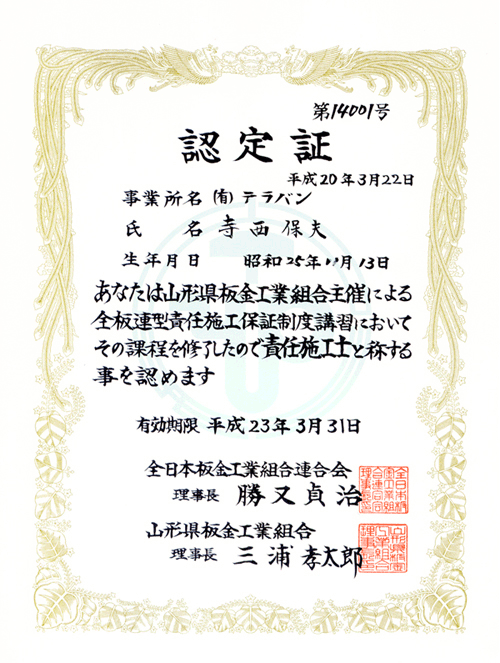 第14001号
認定証
平成20年3月22日
事業所名 (有)テラバン
氏名 寺西保夫
生年月日 昭和25年11月13日
あなたは山形県板金工業組合主催による
全板連型責任施工保証制度講習において
その課程を修了したので責任施工士と称する
事を認めます
有効期限 平成23年3月31日
全日本板金工業組合連合会
理事長 勝又貞治
山形県板金工業組合
理事長 三浦孝太郎